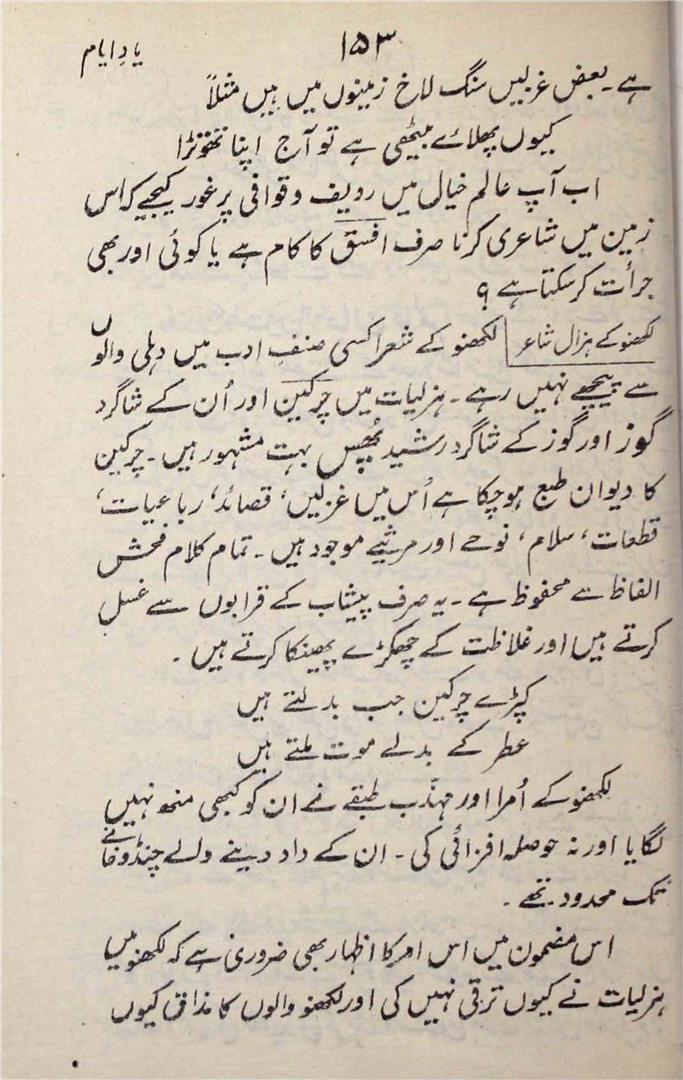 ۱۵۳
یادِ ایام
ہے۔ بعض غزلیں سنگ لاخ زمینوں میں ہیں مثلاً
کیوں پھلائے بیٹھی ہے تو آج اپنا تھوتھڑا
اب آپ عالم خیالی میں ردیف و قوافی پر غور کیجیے کہ اس
زمین میں شاعری کرنا صرف افسق کا کام ہے یا کوئی اور بھی
جرأت کر سکتا ہے ؟
لکھنو کے ہزال شاعر لکھنو کے شعرا کسی صنفِ ادب میں دہلی والوں
سے پیچھے نہیں رہے۔ ہزلیات میں چرکین اور اُن کے شاگرد
گوز اور گوز کے شاگرد رشید پُھس بہت مشہور ہیں۔ چرکین
کا دیوان طبع ہو چکا ہے اُس میں غزلیں، قصائد، رباعیات،
قطعات، سلام، نوحے اور مرثیے موجود ہیں۔ تمام کلام فحش
الفاظ سے محفوظ ہے۔ یہ صرف پیشاب کے قرابوں سے غسل
کرتے ہیں اور غلاظت کے چھکڑے پھینکا کرتے ہیں۔
کپڑے چرکین جب بدلتے ہیں
عطر کے بدلے موت ملتے ہیں
لکھنو کے اُمرا اور مہذّب طبقے نے ان کو کبھی منھ نہیں
لگایا اور نہ حوصلہ افزائی کی۔ ان کے داد دینے والے چنڈو خانے
تک محدود تھے۔
اس مضمون میں اس امر کا اظہار بھی ضروری ہے کہ لکھنو میں
ہزلیات نے کیوں ترقی نہیں کی اور لکھنو والوں کا مذاق کیوں